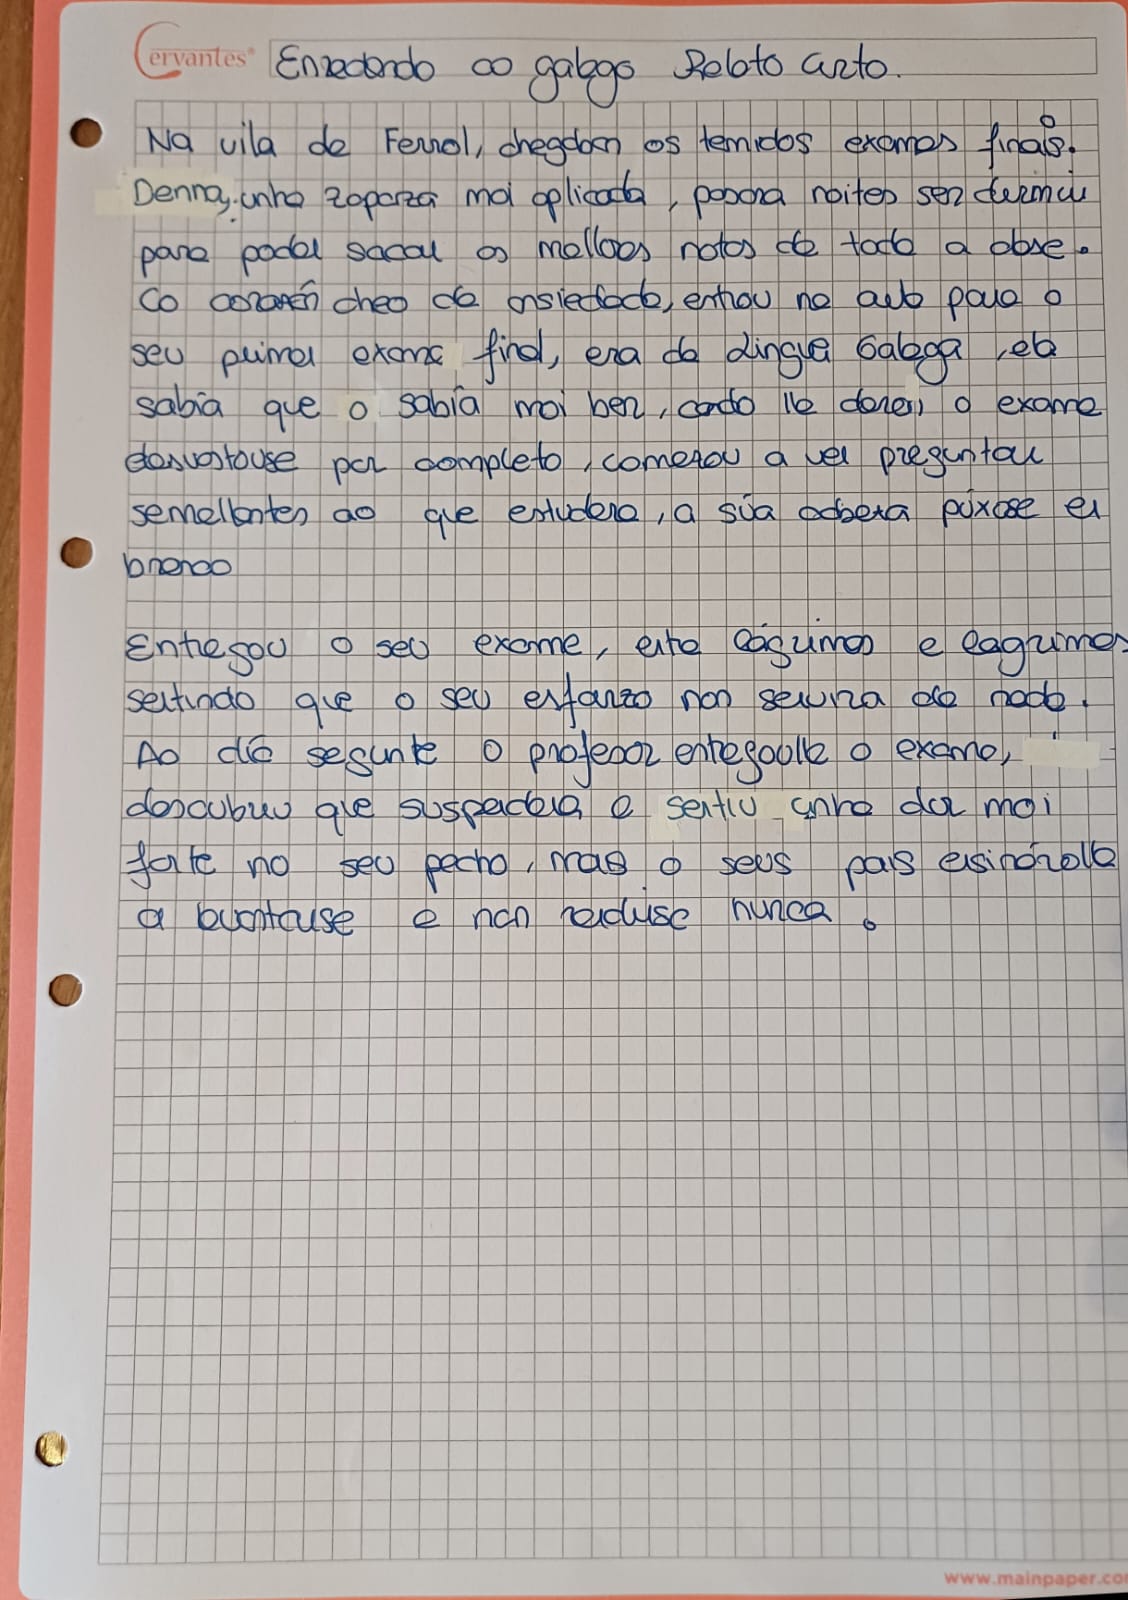 Cervantes® Enredando co galego Relato curto.
Na vila de Ferrol, chegaban os temidos exames finais.
Denna, unha rapaza moi aplicada, pasara noites sen durmir
para poder sacar as mellores notas de toda a clase.
Co corazón cheo de ansiedade, entrou na aula para o
seu primer exame final, era da Lingua Galega, ela
sabía que o sabía moi ben, cando lle deron o exame
desvostouse por completo, comezou a ver preguntas
semellantes ao que estudara, a súa cabeza púxose en
branco
Entregou o seu exame, entre lágrimas e lagrimas
sentindo que o seu esforzo non servira de nada.
Ao día seguinte o profesor entregoulle o exame,
descubriu que suspendera e sentiu unha dor moi
forte no seu pecho, mas o seus pais ensináronlle
a levantouse e non rendiuse nunca.
www.mainpaper.com